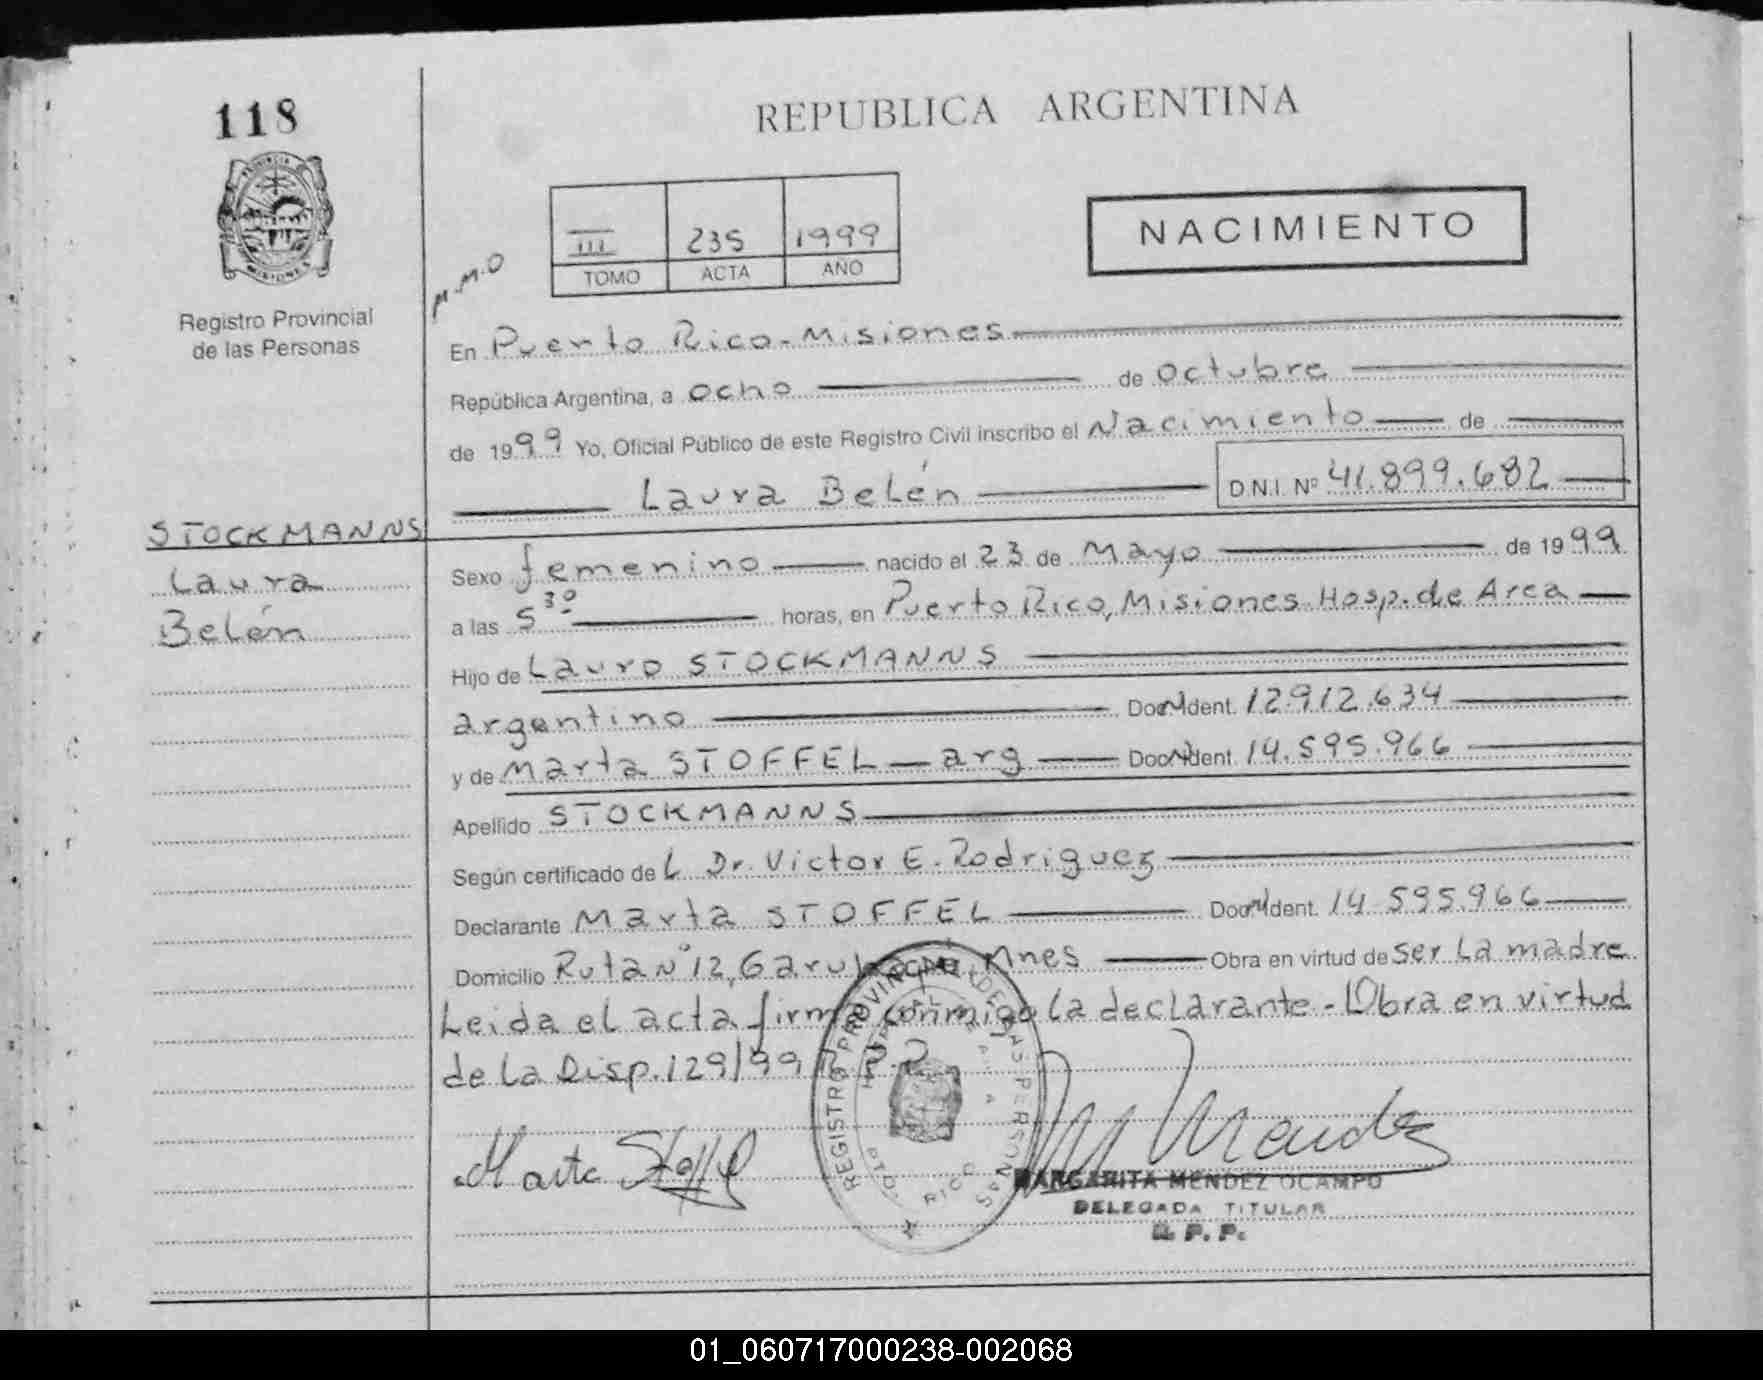 118
REPUBLICA ARGENTINA
PROVINCIA
MISIONES
Registro Provincial
de las Personas
III 235 1999
TOMO ACTA AÑO
NACIMIENTO
M.M.O
En Puerto Rico - Misiones
República Argentina, a ocho de octubre
de 1999 Yo, Oficial Público de este Registro Civil inscribo el Nacimiento de
Laura Belén D.N.I. Nº 41.899.682
STOCKMANNS
Laura
Belén
Sexo femenino nacido el 23 de Mayo de 1999
a las 5 30 horas, en Puerto Rico, Misiones Hosp. de Area
Hijo de Lauro STOCKMANNS
argentino Doc. Ident. 12.912.634
y de Marta STOFFEL - arg Doc. Ident. 14.595.966
Apellido STOCKMANNS
Según certificado de L Dr. Victor E. Rodriguez
Declarante Marta STOFFEL Doc. Ident. 14.595.966
Domicilio Ruta Nº 12, Mnes Obra en virtud de ser la madre
Leida el acta firma conmigo la declarante - Obra en virtud
de la Disp. 129/99
REGISTRO PROVINCIAL DE LAS PERSONAS
PTO. RICO
Marta Stoffel
M Mendez
MARGARITA MENDEZ OCAMPO
DELEGADA TITULAR
R. P. P.
01_060717000238-002068